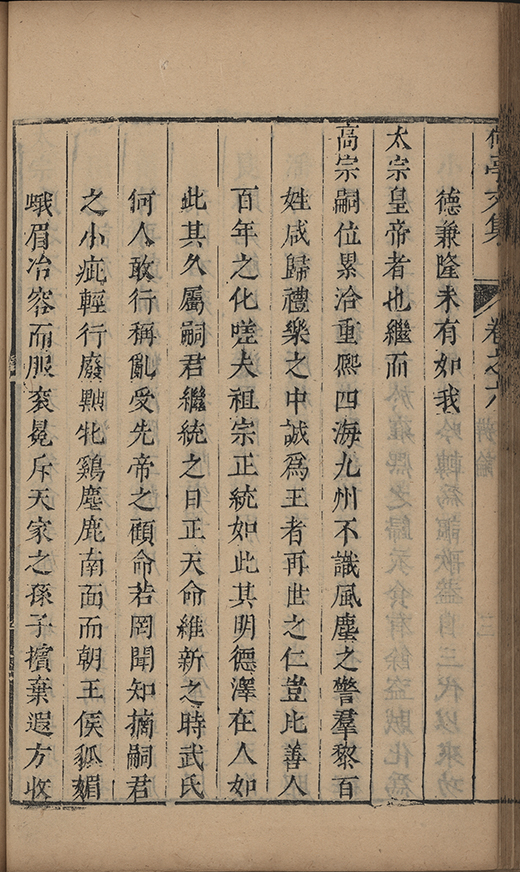 亭文集 卷之六
德兼隆未有如我
太宗皇帝者也繼而
高宗嗣位累洽重熙四海九州不識風塵之警羣黎百
姓咸歸禮樂之中誠爲王者再世之仁豈比善人
百年之化嗟夫祖宗正統如此其明德澤在人如
此其久屬嗣君繼統之日正天命維新之時武氏
何人敢行稱亂受先帝之顧命若罔聞知摘嗣君
之小疵輕行廢黜牝鷄麀鹿南面而朝王侯狐媚
峨眉冶容而服袞冕斥天家之孫子擯棄遐方收